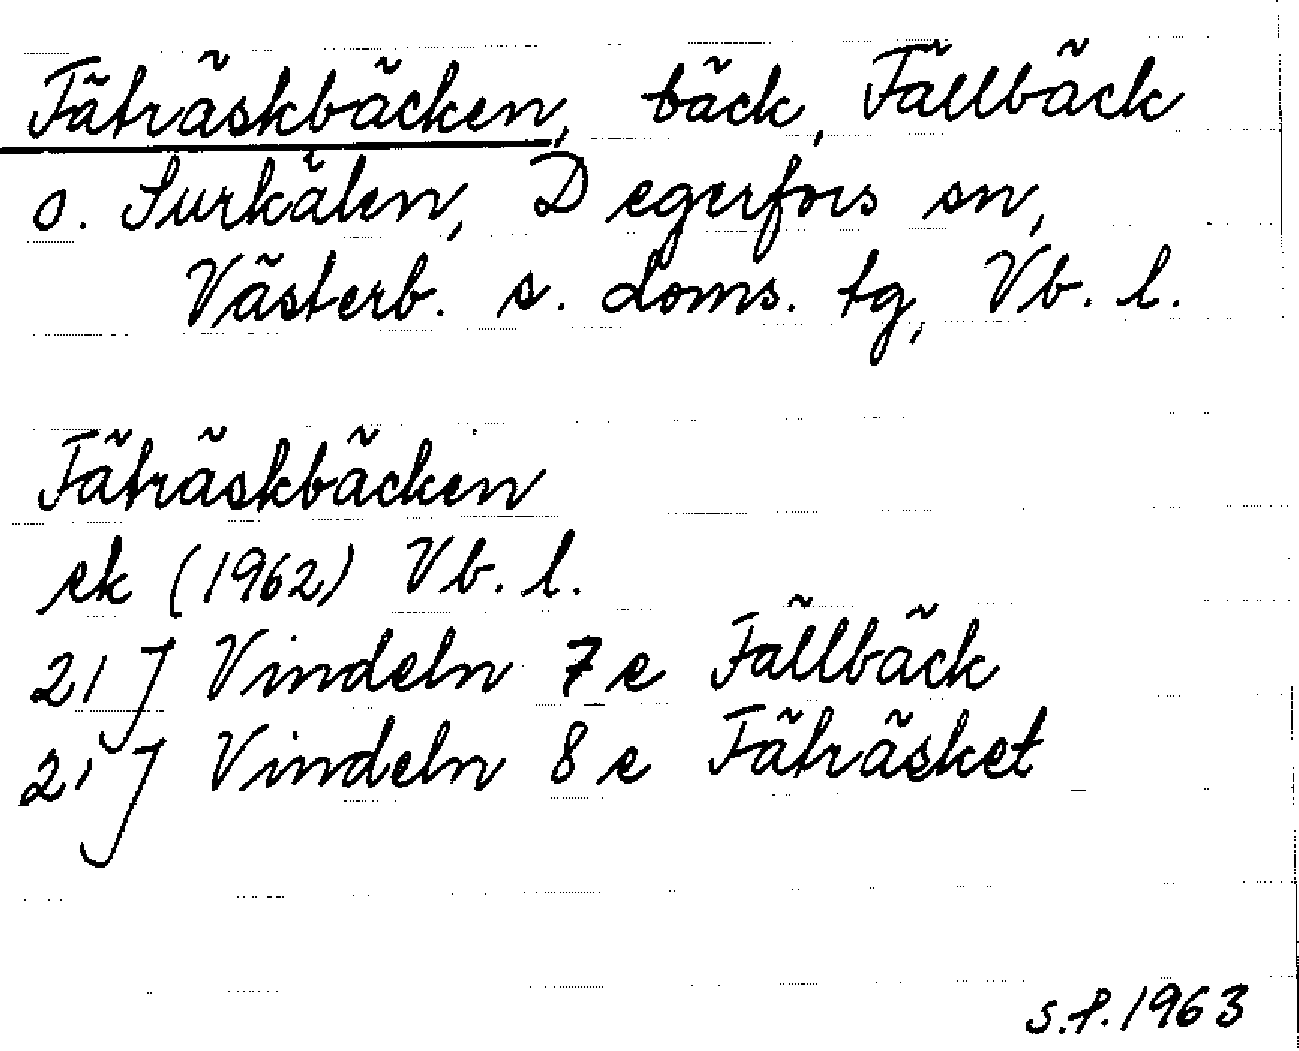 Fäträskbäcken, bäck, Fällbäck
o. Surkälen, Degerfors sn,
Västerb. s. doms. tg, Vb. l.
Fäträskbäcken
ek (1962) Vb. l.
21 J Vindeln 7 e Fällbäck
21 J Vindeln 8 e Fäträsket
S.P. 1963